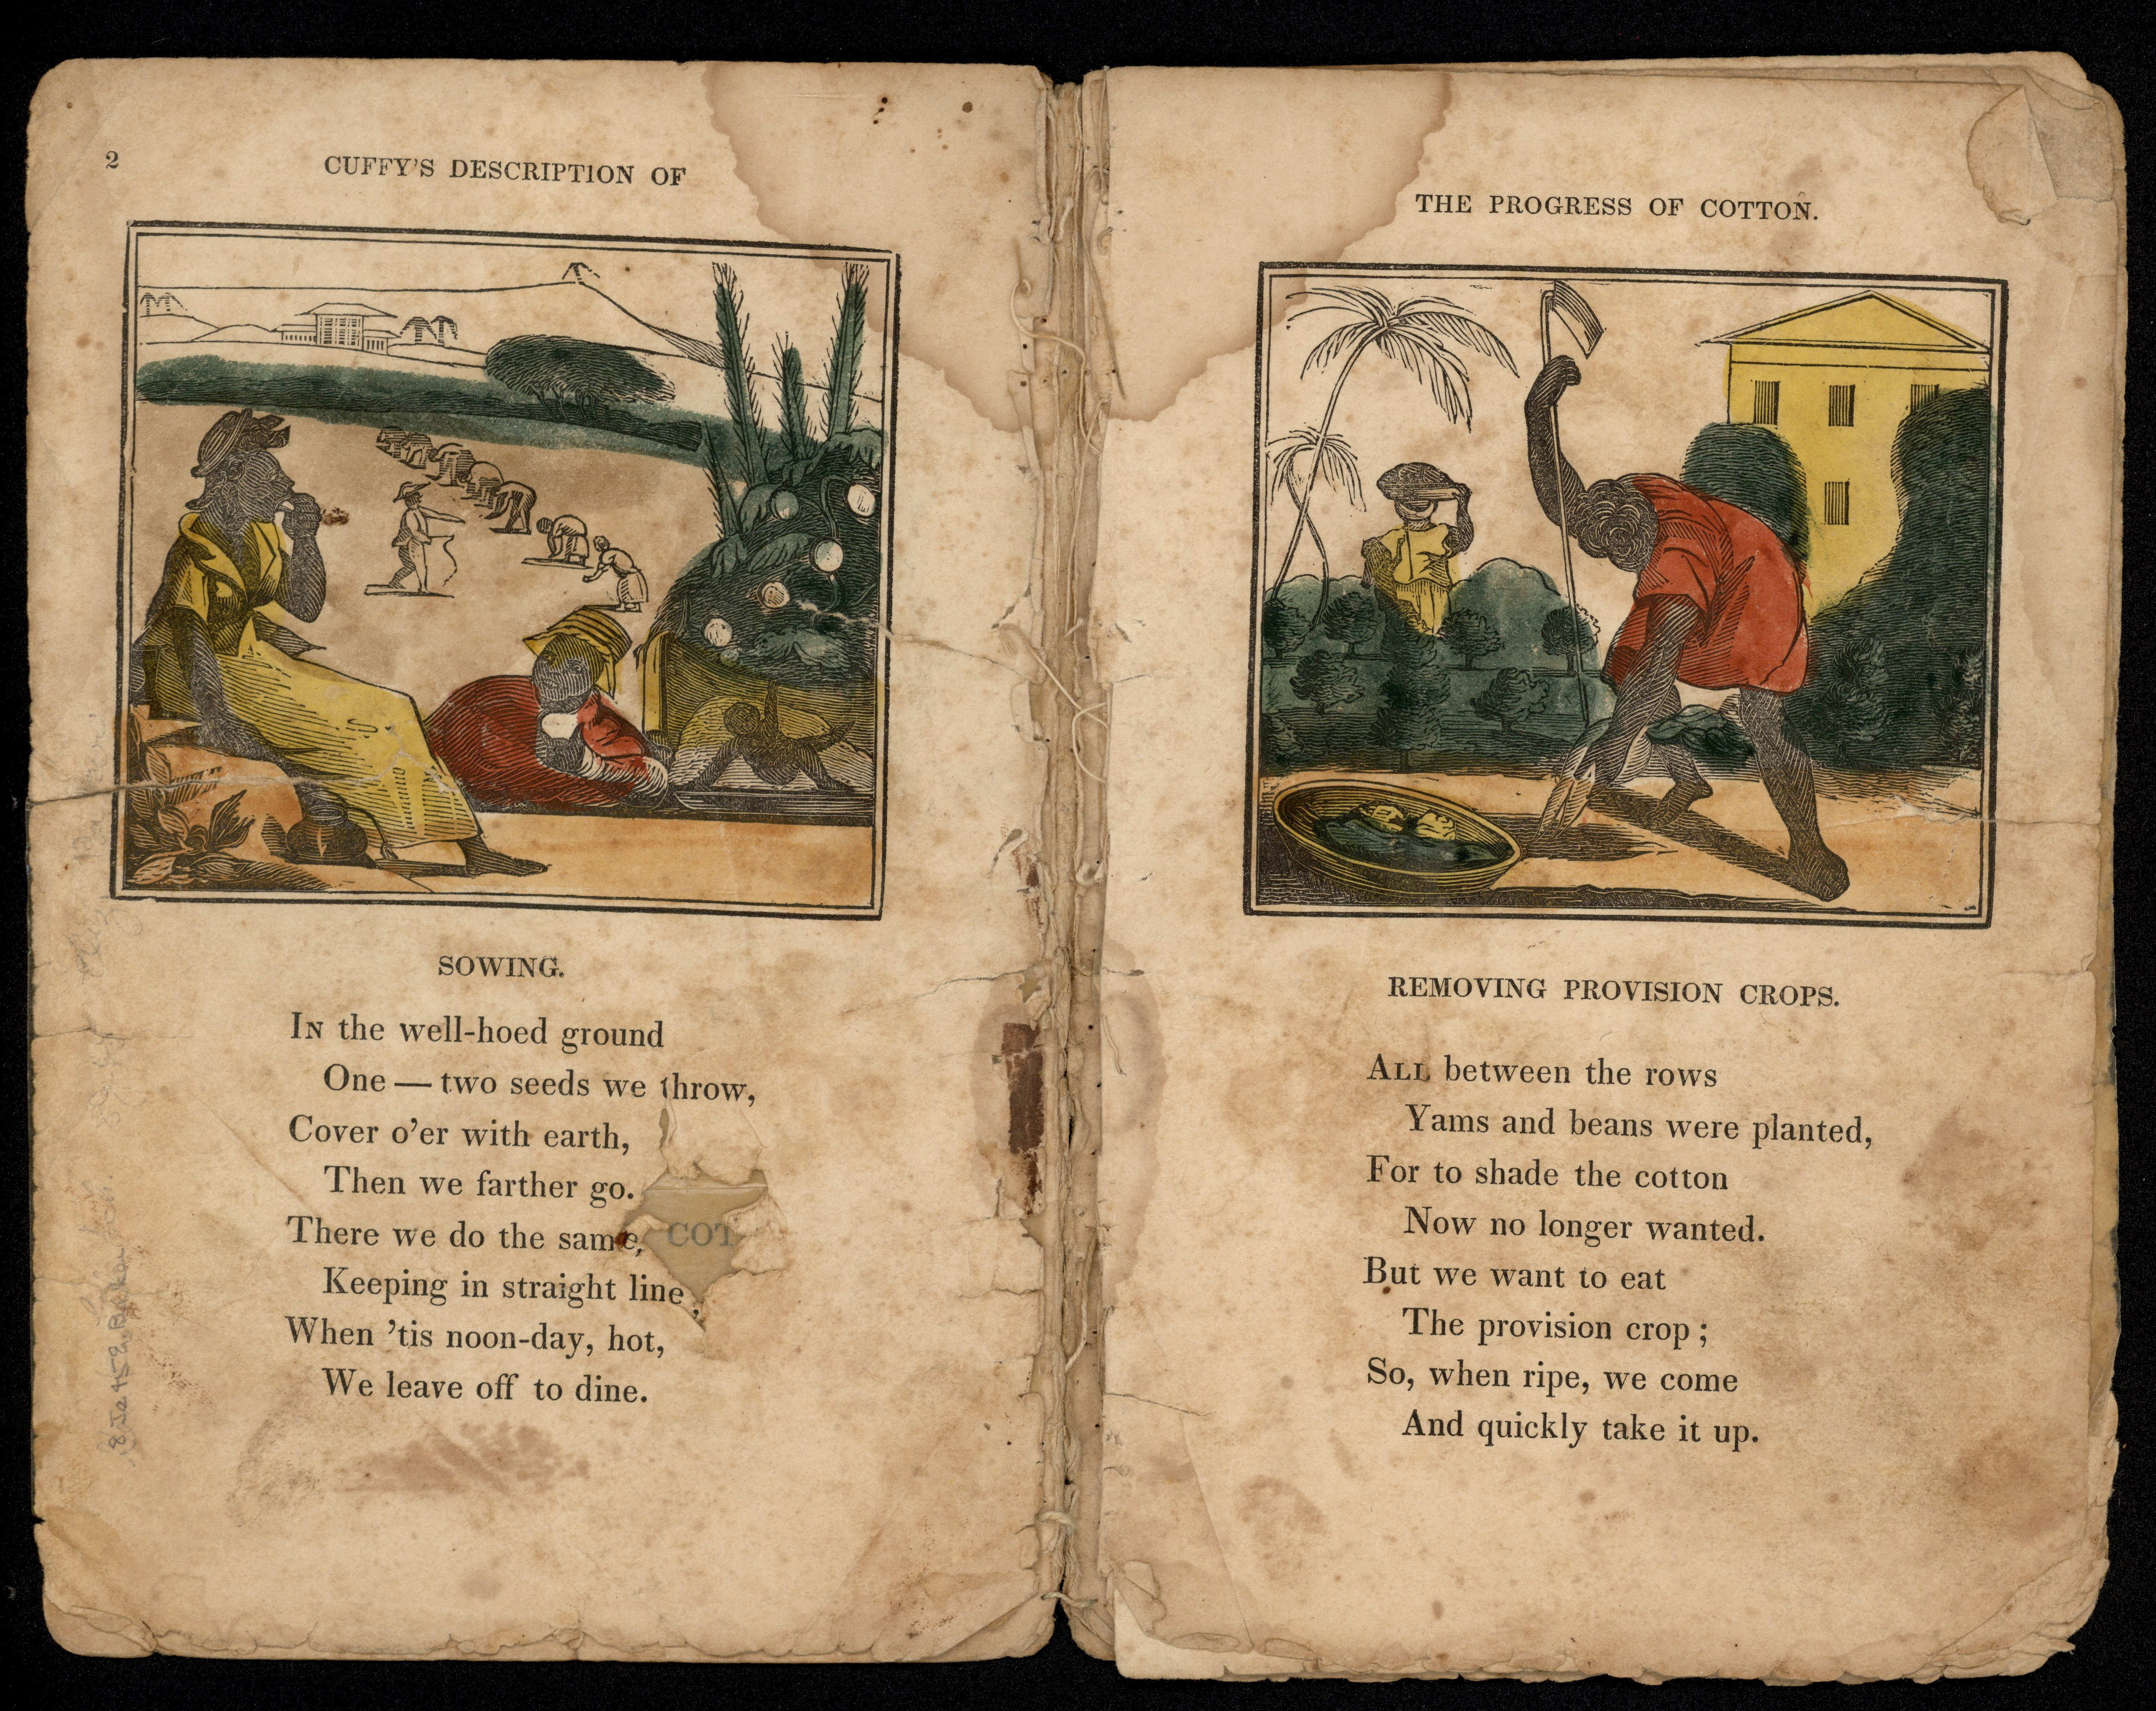 2
CUFFY'S DESCRIPTION OF
SOWING.
IN the well-hoed ground
One — two seeds we throw,
Cover o'er with earth,
Then we farther go.
There we do the same, COT
Keeping in straight line;
When 'tis noon-day, hot,
We leave off to dine.
THE PROGRESS OF COTTON.
REMOVING PROVISION CROPS.
ALL between the rows
Yams and beans were planted,
For to shade the cotton
Now no longer wanted.
But we want to eat
The provision crop;
So, when ripe, we come
And quickly take it up.